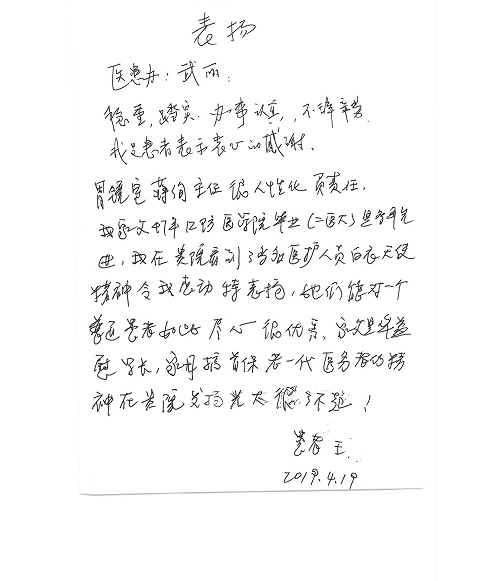 表扬
医患办：武丽：
稳重，踏实 办事认真，不辞辛劳.
我是患者表示衷心的感谢.
胃镜室蒋 主任 很人性化 负责任.
我家父 军 医学院毕业（二医大）是
，我在贵院看到了 医护人员白衣天使
精神令我感动 特表扬，她们能对一个
普通患者如此尽心 很优秀。家父是
长，家母搞 保 老一代医务者的精
神在贵院发扬光大 很了不起！
患者 王.
2019.4.19